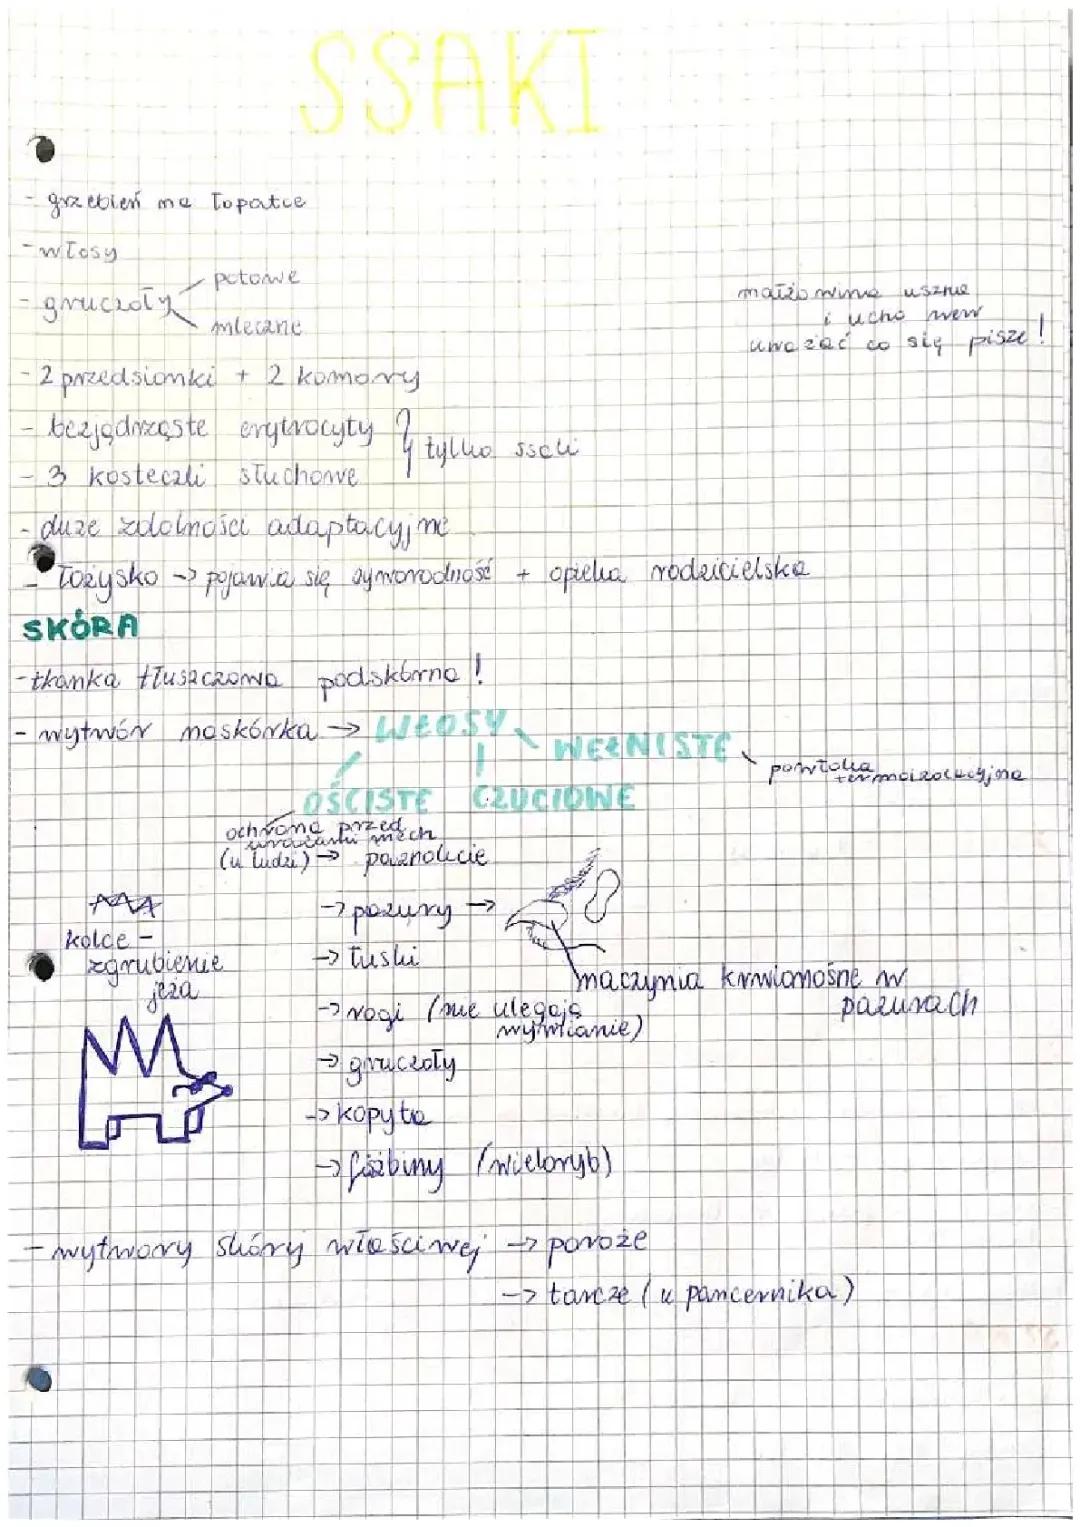 SSAKI
- grzebień na łopatce
- włosy
- gruczoły
potowe
mleczne
małżowina uszna
i ucho wew
uważać co się pisze!
- 2 przedsionki + 2 komory
- bezjądrzaste erytrocyty
- 3 kosteczki słuchowe
tylko ssaki
- duże zdolności adaptacyjne
- łożysko -> pojawia się żyworodność + opieka rodzicielska
SKÓRA
- tkanka tłuszczowa podskórna!
- wytwór naskórka -> WŁOSY
WEŁNISTE
powłoka
termoizolacyjna
OŚCISTE CZUCIOWE
ochrona przed
urazami mech
(u ludzi) -> paznokcie
-> pazury ->
kolce -
zgrubienie
jeża
-> łuski
naczynia krwionośne w
pazurach
-> rogi (nie ulegają
wymianie)
-> gruczoły
-> kopyta
-> fiszbiny (wieloryb)
- wytwory skóry właściwej -> poroże
-> tarcze (u pancernika)